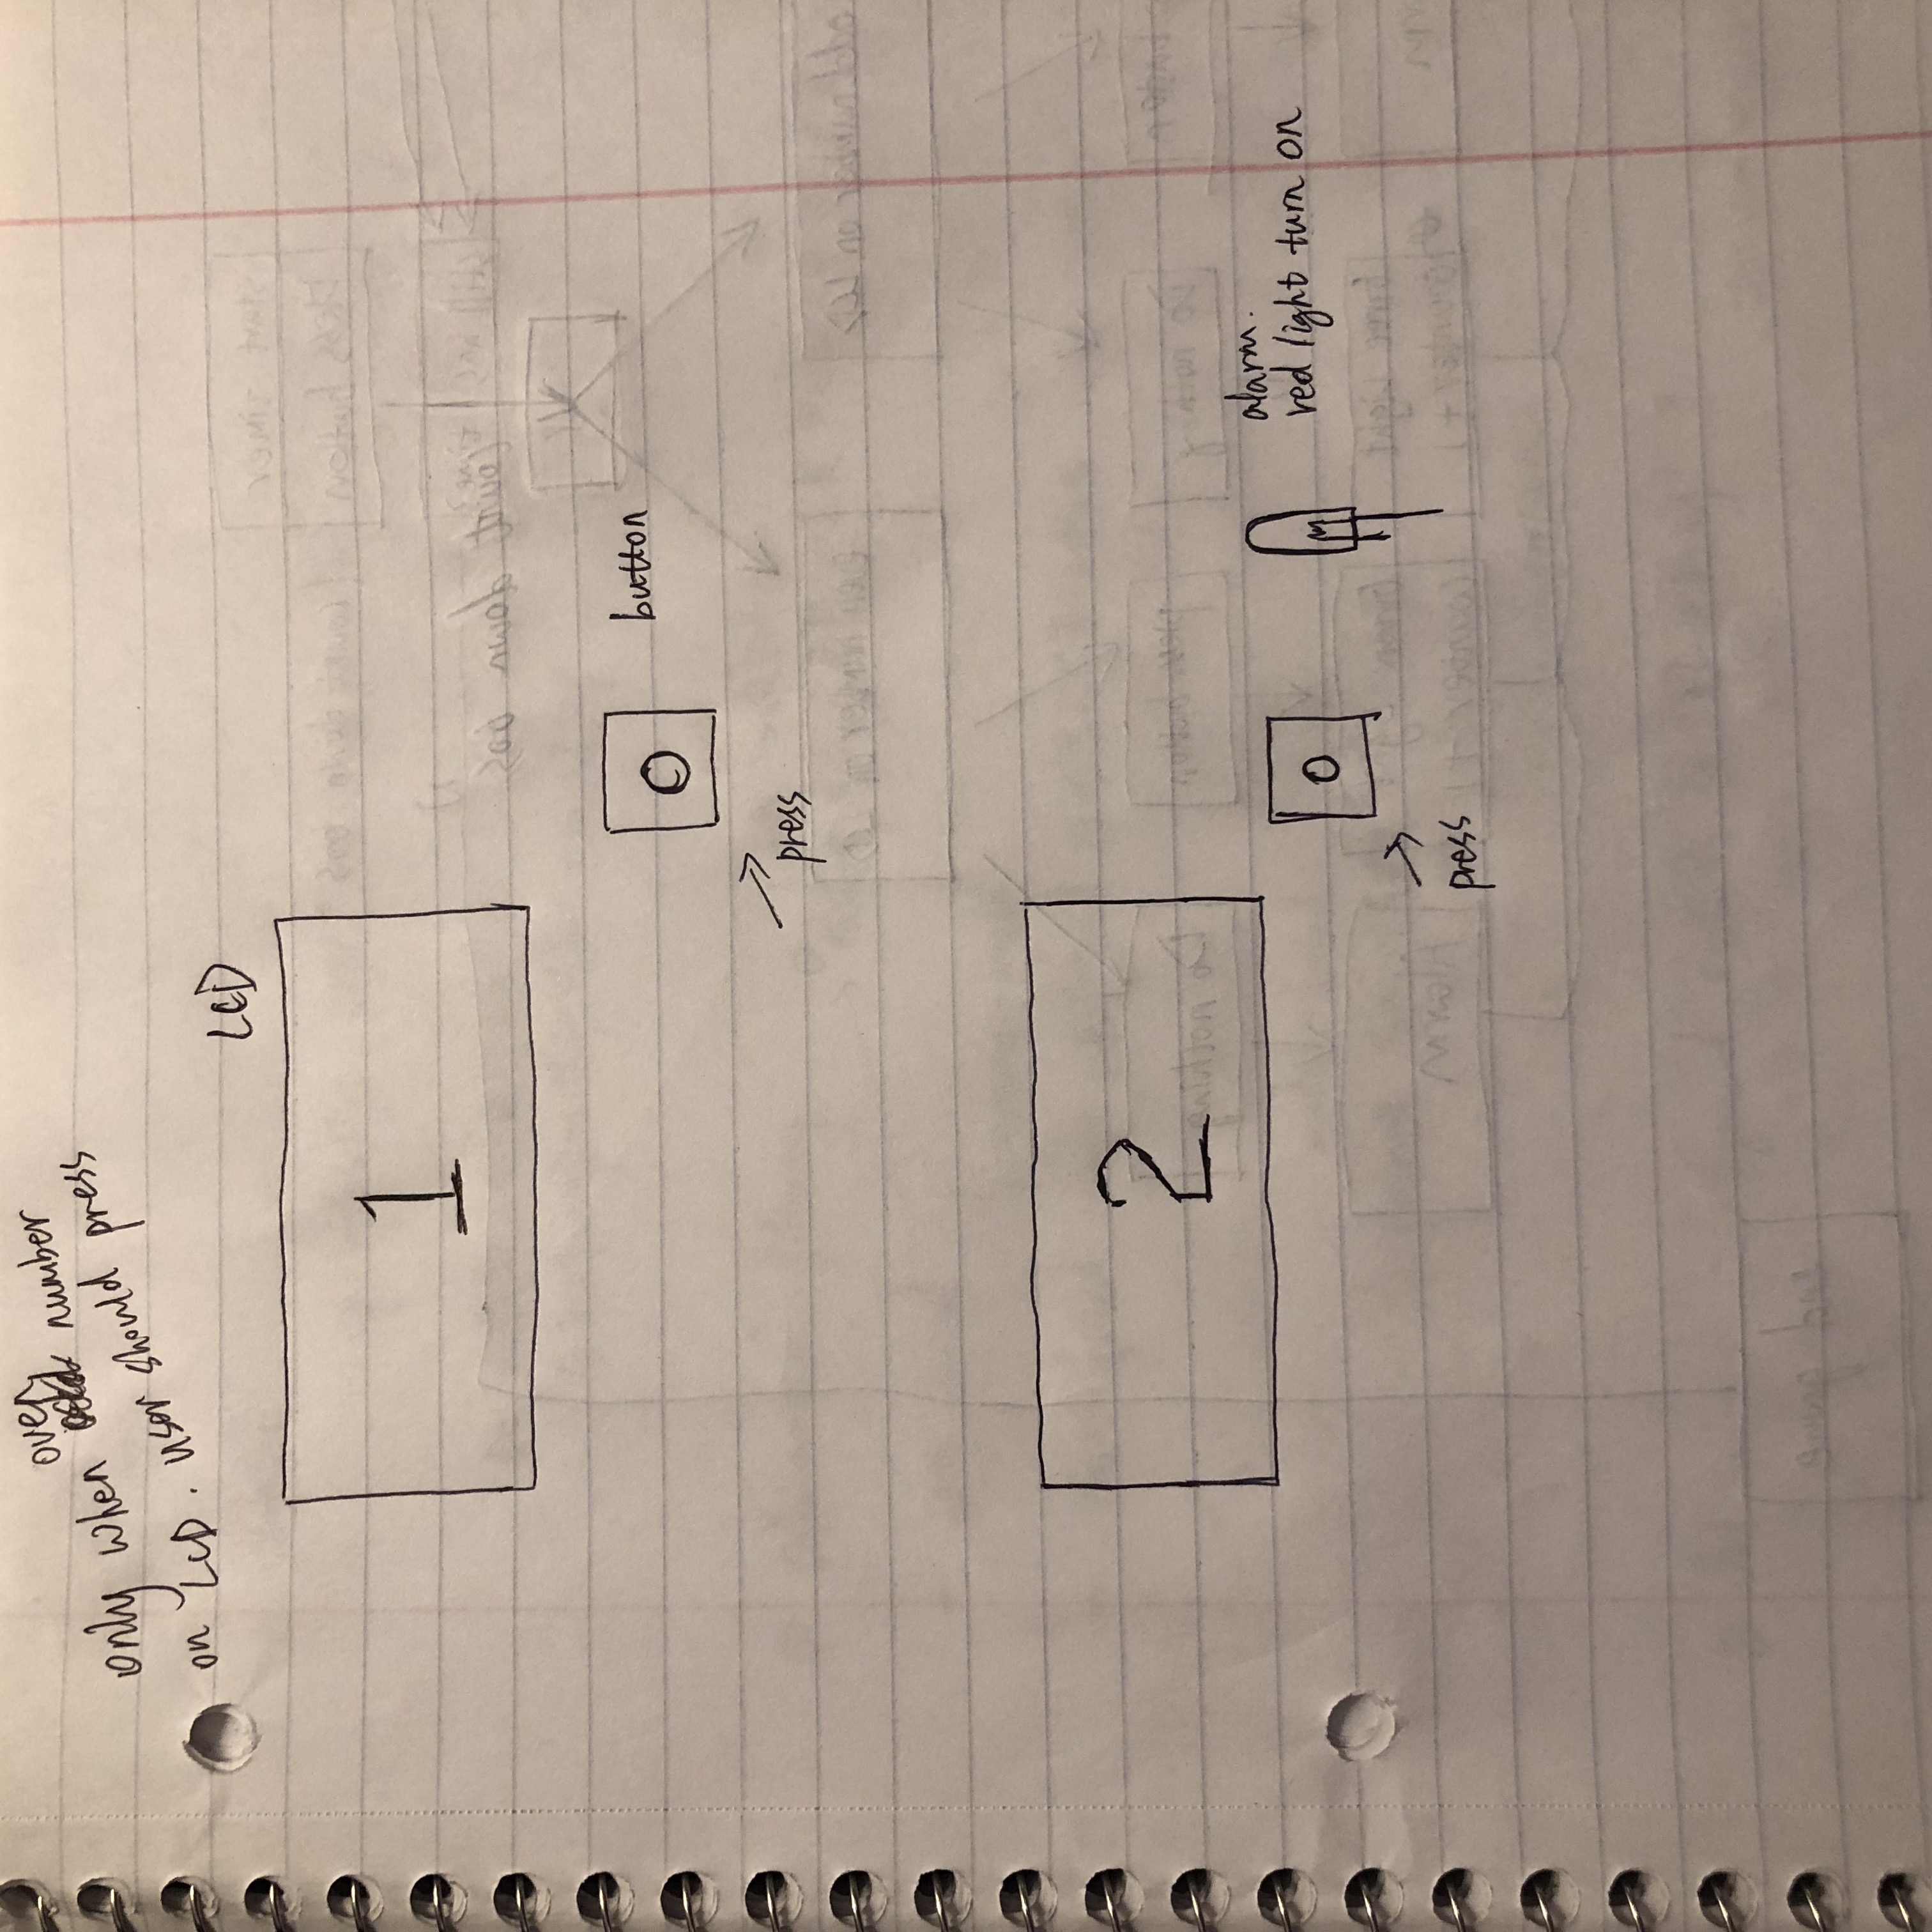 only when even number
on LCD. user should press
LCD
1
button
press
2
alarm.
red light turn on
press